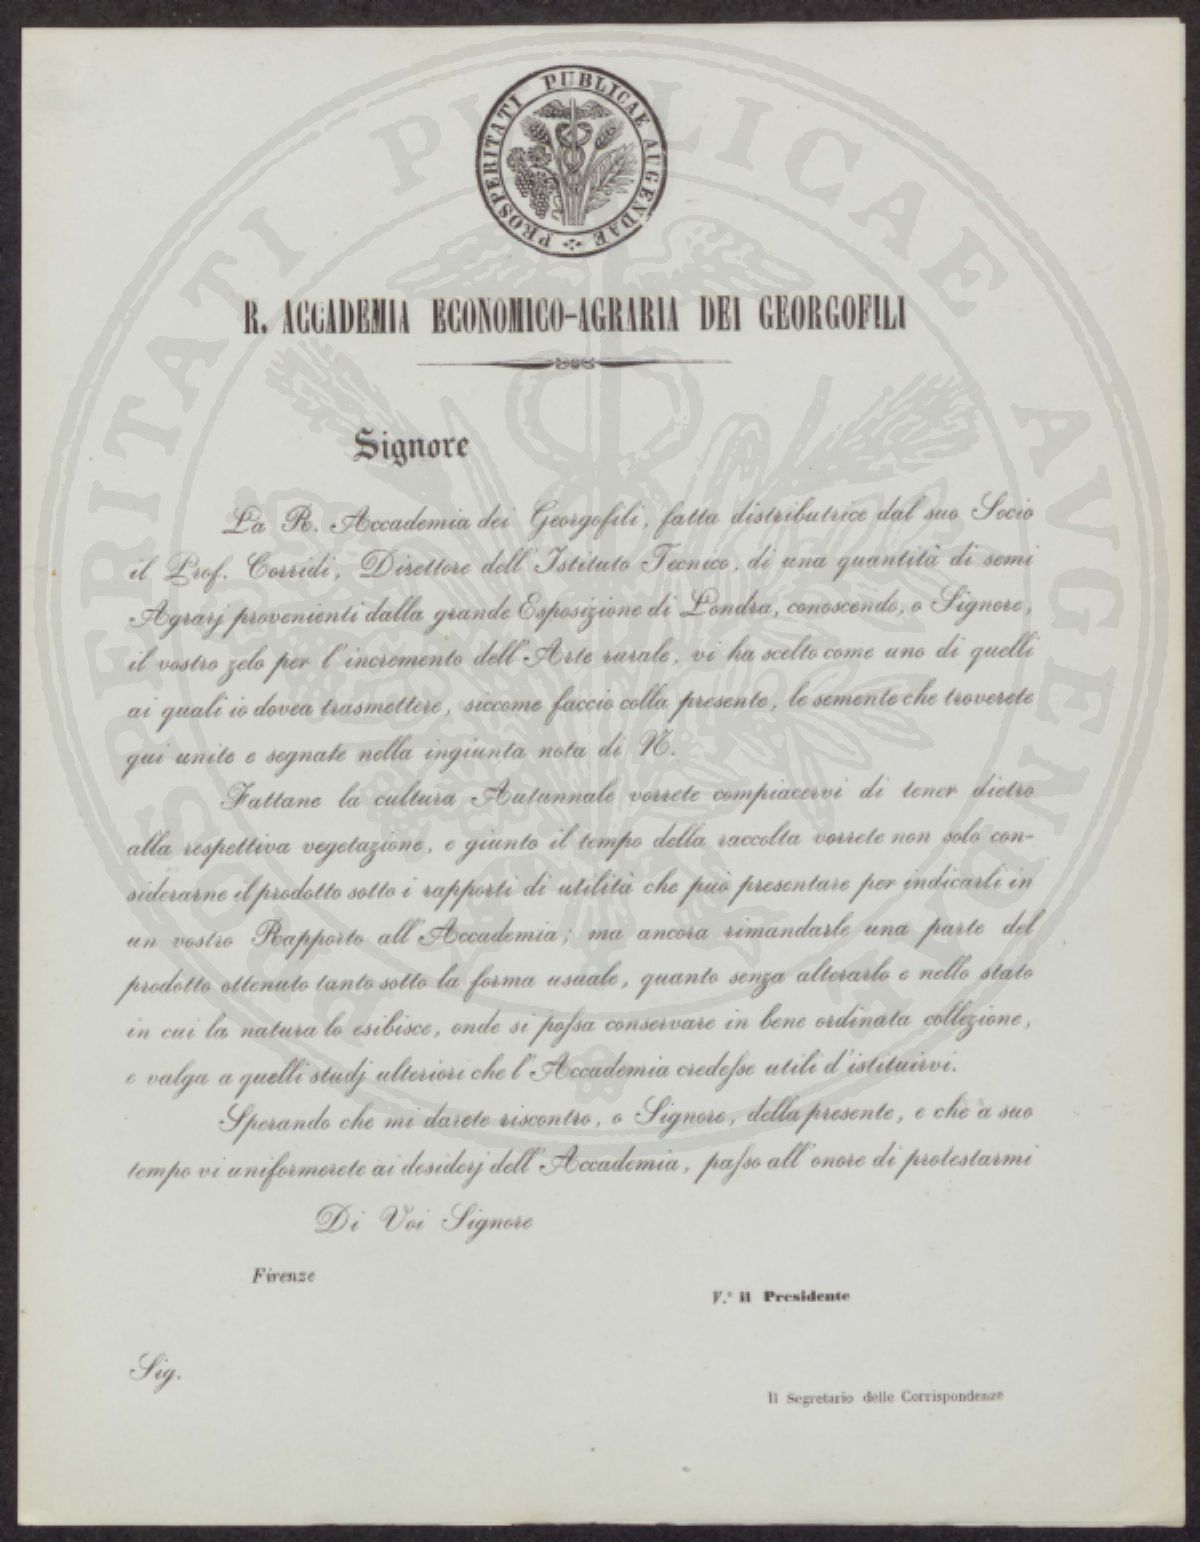 PROSPERITATI PUBLICAE AUGENDAE
R. ACCADEMIA ECONOMICO-AGRARIA DEI GEORGOFILI
Signore
La R. Accademia dei Georgofili, fatta distributrice dal suo Socio
il Prof. Corridi, Direttore dell'Istituto Tecnico, di una quantità di semi
Agrarj provenienti dalla grande Esposizione di Londra, conoscendo, o Signore,
il vostro zelo per l'incremento dell'Arte rurale, vi ha scelto come uno di quelli
ai quali io dovea trasmettere, siccome faccio colla presente, le semente che troverete
qui unite e segnate nella ingiunta nota di N.
Fattane la cultura Autunnale vorrete compiacervi di tener dietro
alla respettiva vegetazione, e giunto il tempo della raccolta vorrete non solo con-
siderarne il prodotto sotto i rapporti di utilità che può presentare per indicarli in
un vostro Rapporto all'Accademia; ma ancora rimandarle una parte del
prodotto ottenuto tanto sotto la forma usuale, quanto senza alterarlo e nello stato
in cui la natura lo esibisce, onde si poſsa conservare in bene ordinata collezione,
e valga a quelli studj ulteriori che l'Accademia credeſse utili d'istituirvi.
Sperando che mi darete riscontro, o Signore, della presente, e che a suo
tempo vi uniformerete ai desiderj dell'Accademia, paſso all'onore di protestarmi
Di Voi Signore
Firenze
F.° il Presidente
Sig.
Il Segretario delle Corrispondenze
PROSPERITATI PUBLICAE AVGENDAE